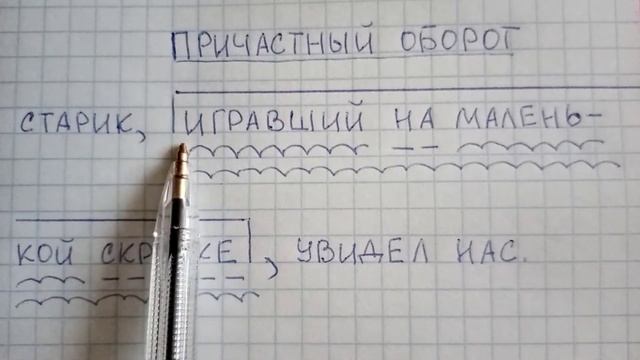 ПРИЧАСТНЫЙ ОБОРОТ
СТАРИК, ИГРАВШИЙ НА МАЛЕНЬ-
КОЙ СКРИПКЕ, УВИДЕЛ НАС.